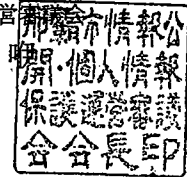 営審議会
那覇市情報公
開・個人情報
保護運営審議
会会長印